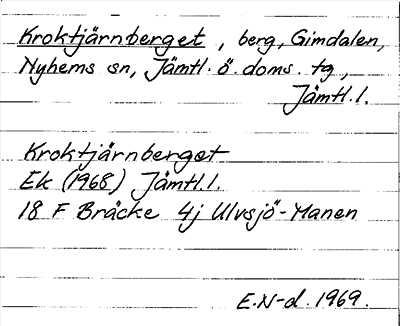 Kroktjärnberget, berg, Gimdalen,
Nyhems sn, Jämtl. ö. doms. tg,
Jämtl. l.
Kroktjärnberget
Ek (1968) Jämtl. l.
18 F Bräcke 4j Ulvsjö-Manen
E.N-d. 1969.